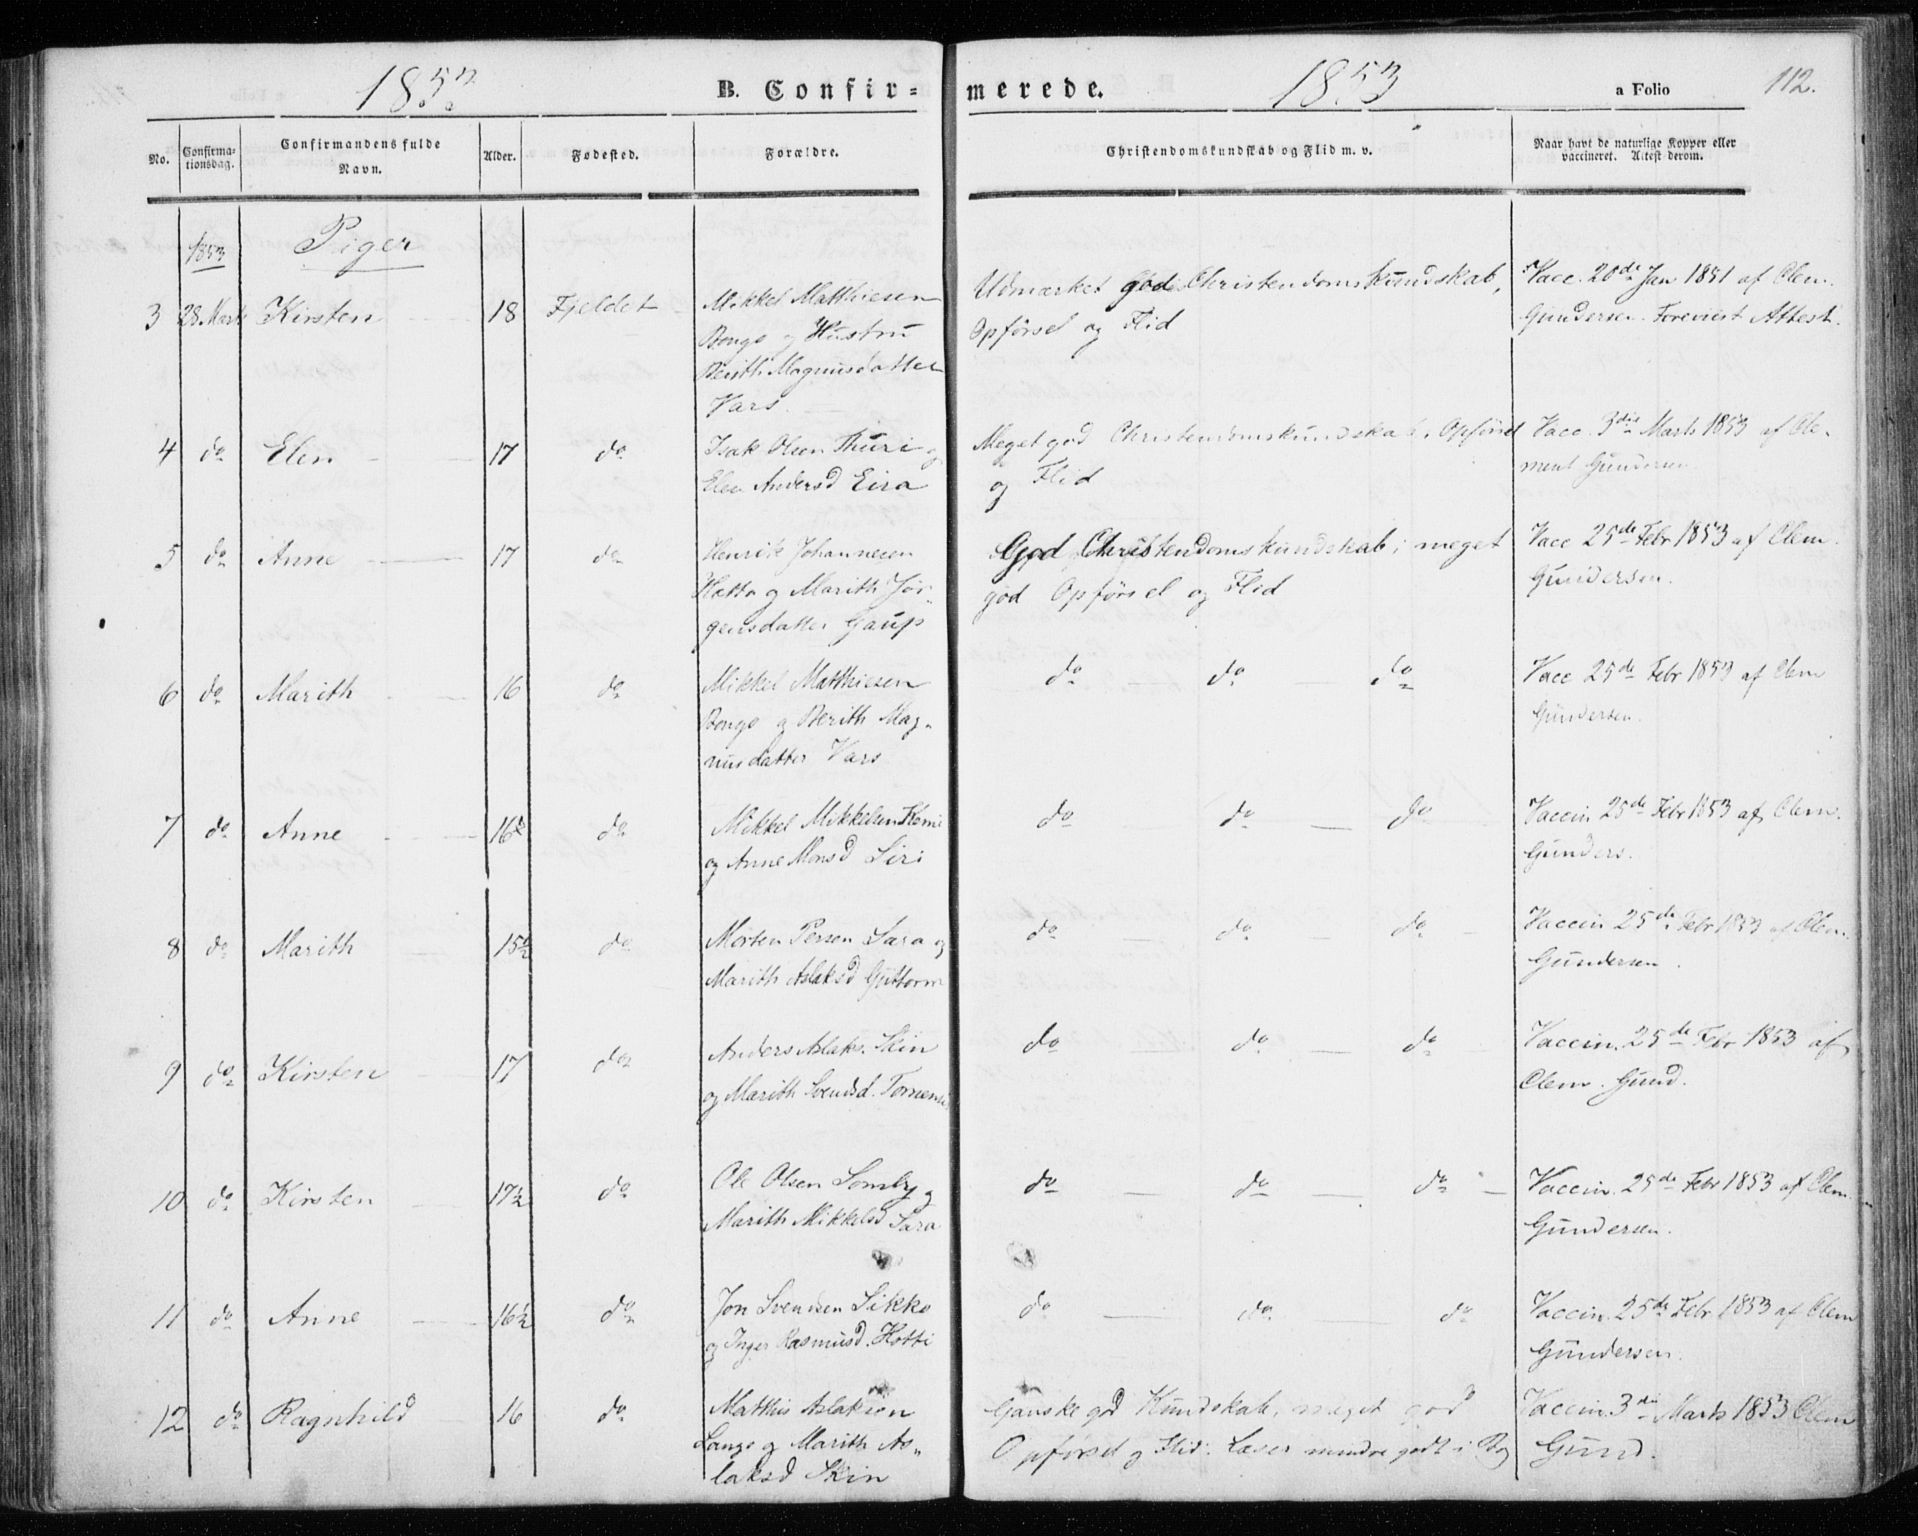 1853 B. Confir= merede. 1853 a Folio 112.
No. Confirma-tionsdag. Confirmandens fulde Navn. Alder. Fødested. Forældre. Christendomskundskab og Flid m. v. Naar havt de naturlige Kopper eller vaccineret. Attest derom.
1853 Piger
3 28 Marts Kirsten 18 Fjeldet Mikkel Matthiesen Udmærket god Christendomskundskab, Vacc. 20de Jan 1851 af Clem.
Bongo og Hustru Opførsel og Flid Gundersen. Foreviist Attest.
Berith Magnusdatter
Vars.
4 do Elen 17 do Isak Olsen Thuri og Meget god Christendomskundskab, Opførsel Vacc. 3die Marts 1853 af Cle-
Elen Andersd Eira og Flid ment Gundersen
5 do Anne 17 do Henrik Johannesen God Christendomskundskab; meget Vacc 25de Febr 1853 af Clem.
Hætta og Marith Jør- god Opførsel og Flid Gundersen.
gensdatter Gaup
6 do Marith 16 do Mikkel Matthiesen do do do Vacc 25de Febr 1853 af Clem
Bongo og Berith Mag- Gundersen.
nusdatter Vars
7 do Anne 16½ do Mikkel Mikkelsen do do do Vaccin 25de Febr 1853 af Clem.
og Anne Monsd Siri Gunders.
8 do Marith 15½ do Morten Persen Sara og do do do Vaccin 25de Febr 1853 af Clem.
Marith Aslaksd Guttorm Gundersen.
9 do Kirsten 17 do Anders Aslaks. Skin do do do Vaccin. 25de Febr 1853 af
og Marith Svendsd. Clem. Gund.
10 do Kirsten 17½ do Ole Olsen Somby og do do do Vaccin. 25de Febr 1853 af Clem.
Marith Mikkelsd Sara Gundersen.
11 do Anne 16½ do Jon Svendsen Sikko do do do Vaccin. 25de Febr 1853 af Clem
og Inger Rasmusd. Hotti Gundersen.
12 do Ragnhild 16 do Matthis Aslaksen Ganske god Kundskab, meget god Vaccin. 3die Marts 1853 Clem
Lango og Marith As- Opførsel og Flid. Læser mindre godt i Bog Gund.
laksd Skin